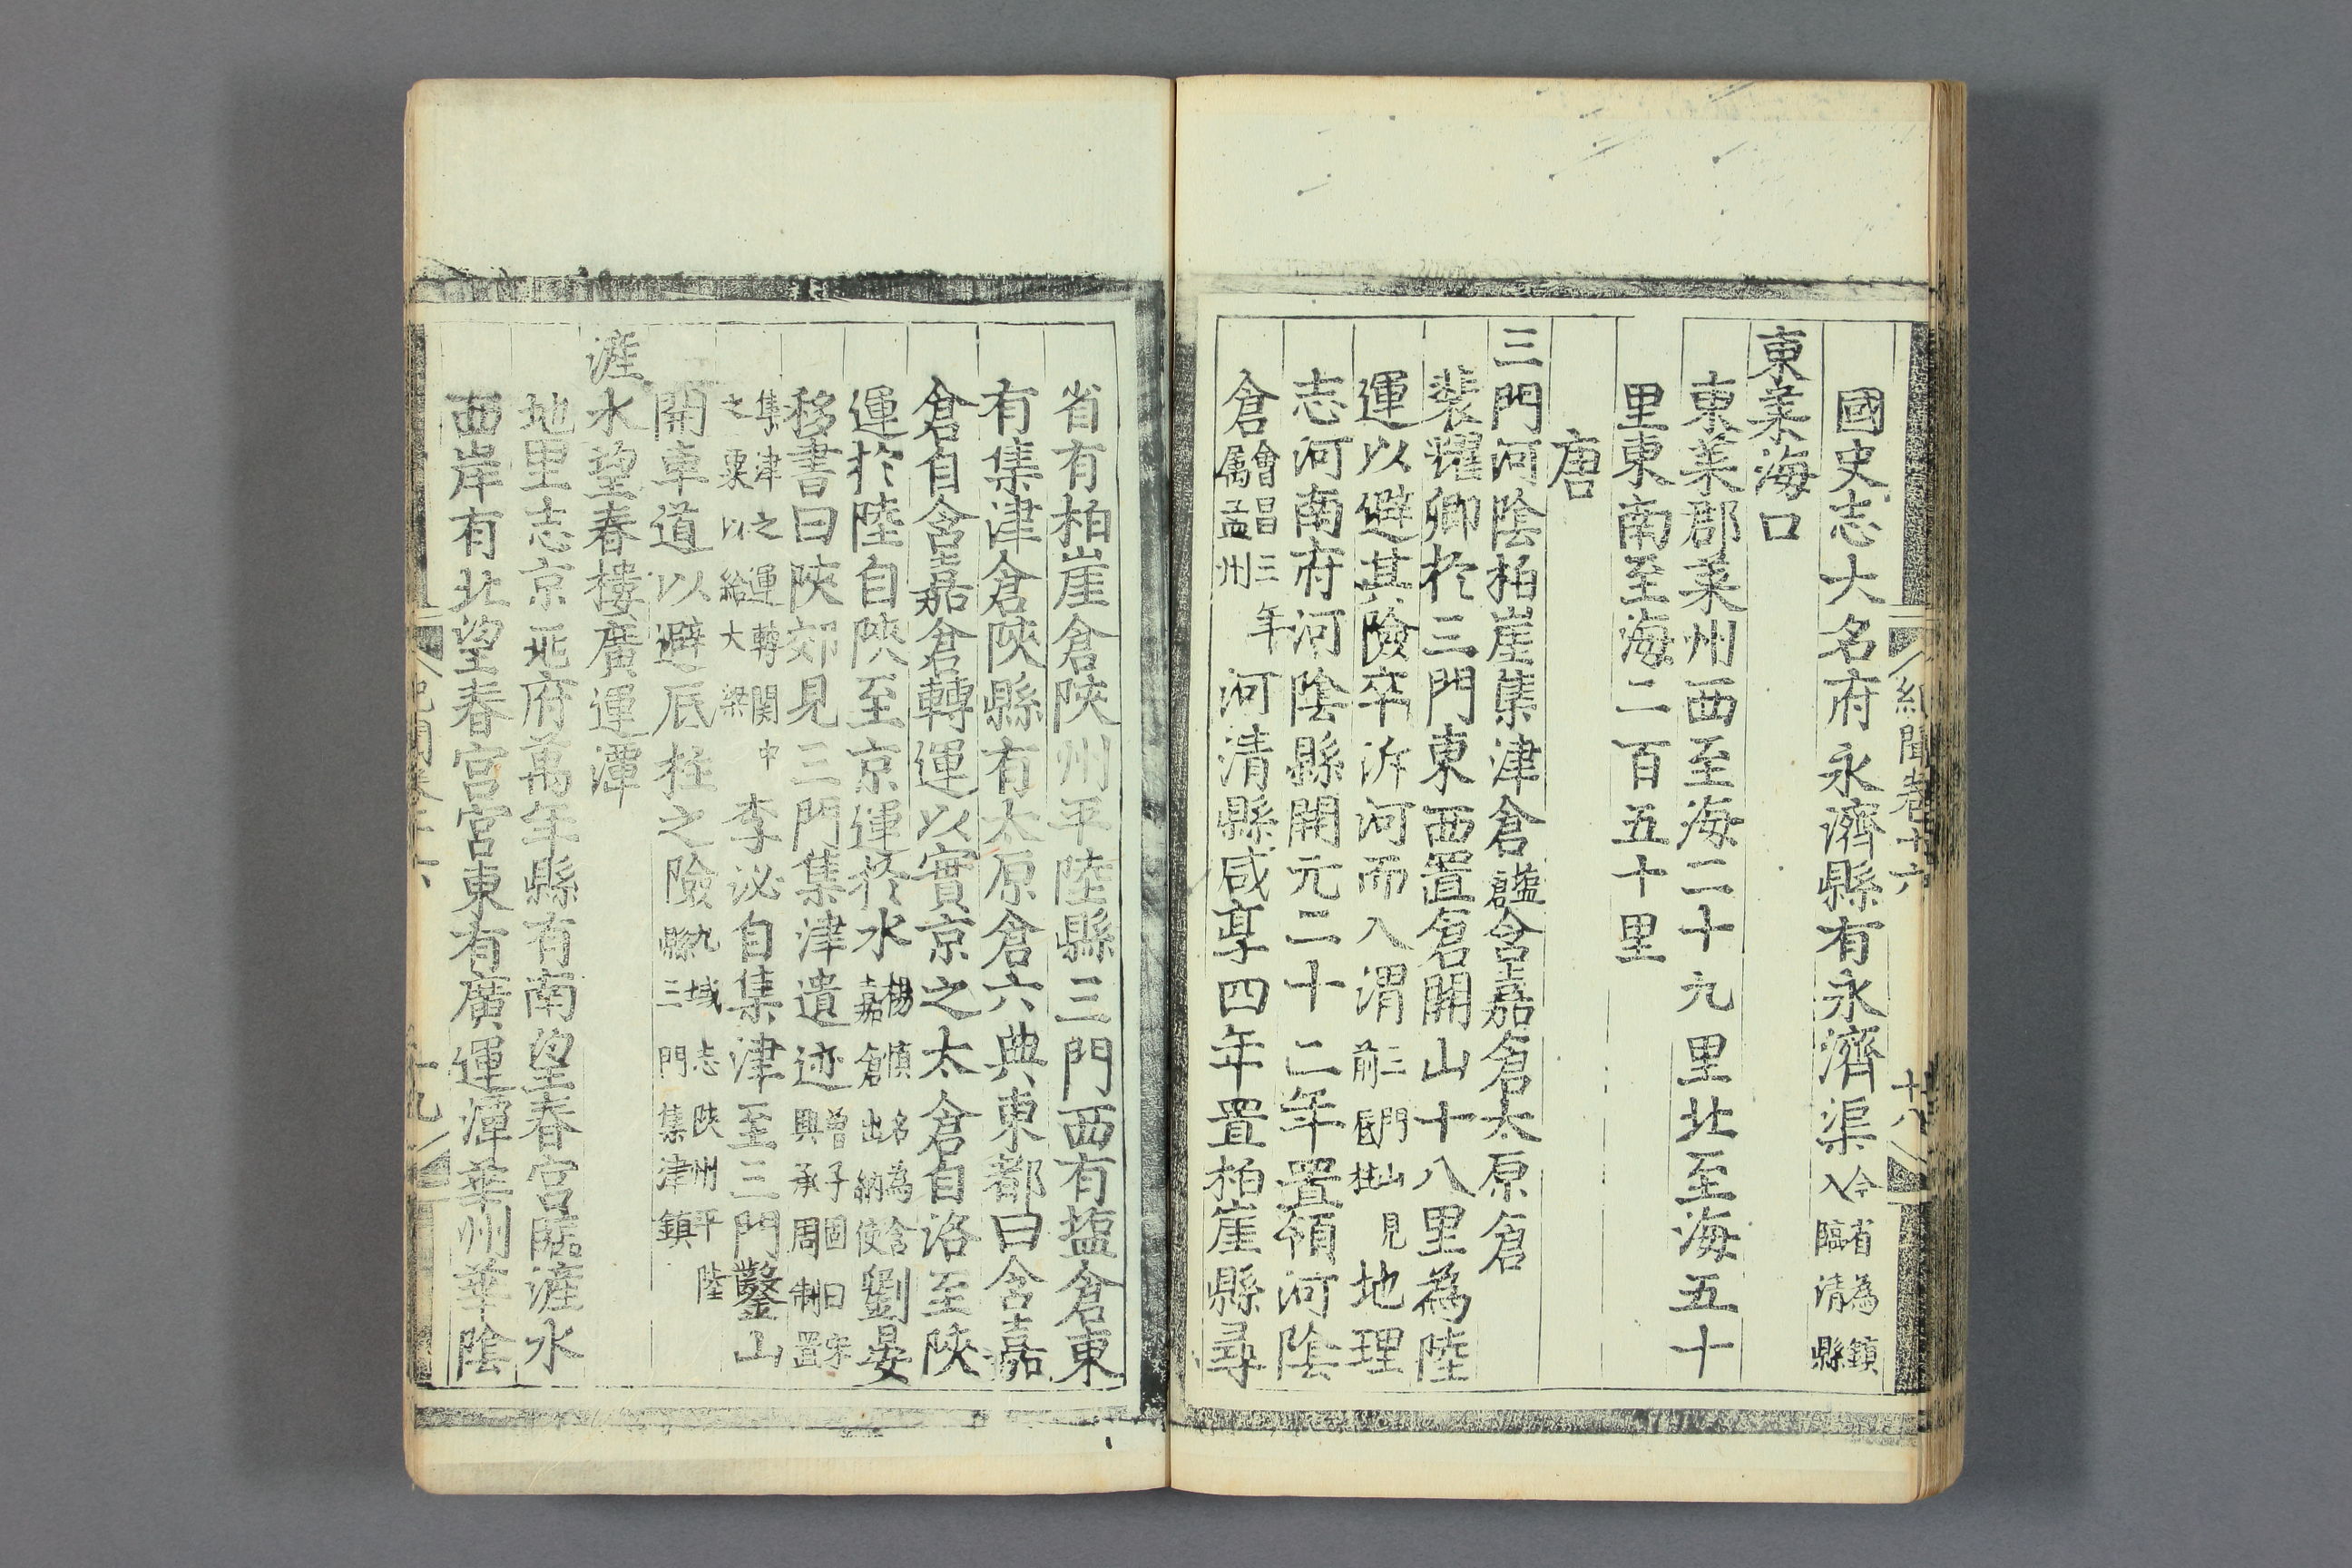 紀聞卷十六 十八
國史志大名府永濟縣有永濟渠今省為鎮入臨清縣
東萊海口
東萊郡萊州西至海二十九里北至海五十
里東南至海二百五十里
唐
三門河陰柏崖集津倉鹽倉含嘉倉太原倉
裴耀卿於三門東西置倉開山十八里為陸
運以避其險卒泝河而入渭三門山見前底柱地理
志河南府河陰縣開元二十二年置領河陰
倉會昌三年屬孟州河清縣咸亨四年置柏崖縣尋
省有柏崖倉陝州平陸縣三門西有塩倉東
有集津倉陝縣有太原倉六典東都曰含嘉
倉自含嘉倉轉運以實京之太倉自洛至陝
運於陸自陝至京運於水楊慎名為含嘉倉出納使劉晏
移書曰陝郊見三門集津遺迹曾子固曰宋興承周制置
集津之運轉関中之粟以給大梁李泌自集津至三門鑿山
開車道以避底柱之險九域志陝州平陸縣三門集津鎮
滻水望春樓廣運潭
地里志京兆府萬年縣有南望春宮臨滻水
西岸有北望春宮宮東有廣運潭華州華陰
紀聞卷十六 十九